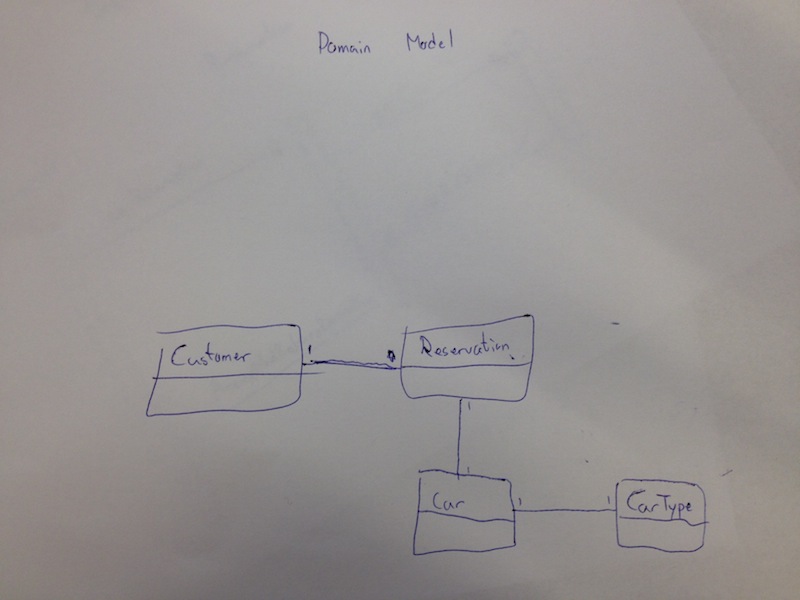 Domain Model
Customer
1
Reservation
1
1
Car
1
1
CarType